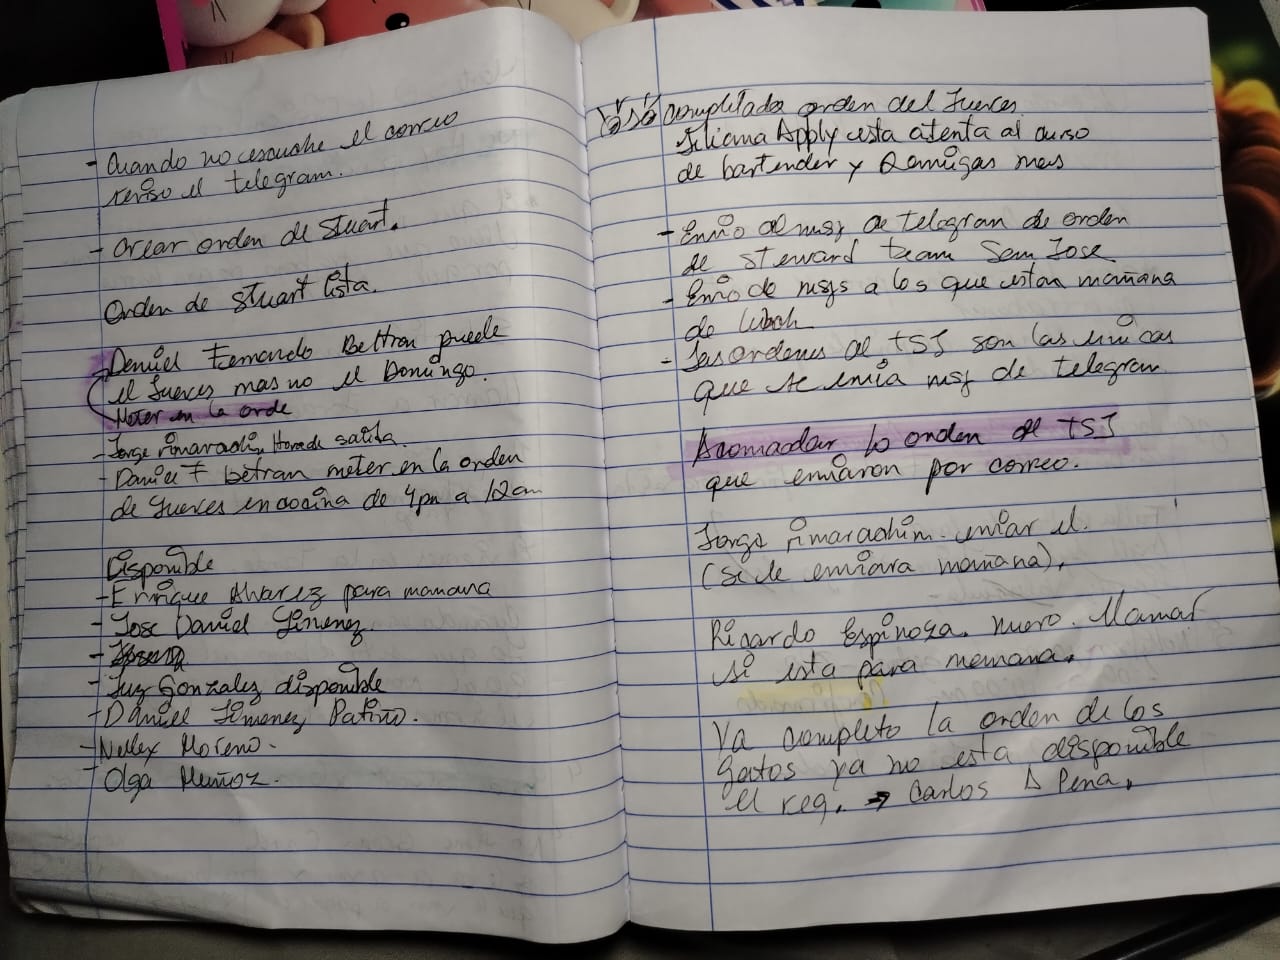 - Cuando no escuche el correo
reviso el telegram.
- Crear orden de Stuart.
Orden de Stuart lista.
Daniel Fernando Beltran puede
el Jueves mas no el Domingo.
Meter en la orde
- Jorge Rimarachin Hora de salida.
- Daniel F beltran meter en la orden
de Jueves en cocina de 4pm a 12am
Disponible
- Enrique Alvarez para manana
- Jose Daniel Jimenez
-
- Luz Gonzalez disponible
- Daniel Jimenez Patiño.
- Nellex Moreno.
- Olga Muñoz.
completada orden del Jueves
Liliana Apply esta atenta al curso
de bartender y 2 amigas mas
- Envio al msj de telegran de orden
de steward team San Jose
- Envio de msjs a los que estan mañana
de
- Las ordenes al TSJ son las unicas
que se envia msj de telegram
Acomodar la orden al TSJ
que enviaron por correo.
Jorge Rimarachim. enviar el.
(se le enviara mañana).
Ricardo Espinoza. nuevo. llamar
si esta para manana.
Ya completo la orden de los
gatos ya no esta disponible
el reg. → Carlos A Pena.